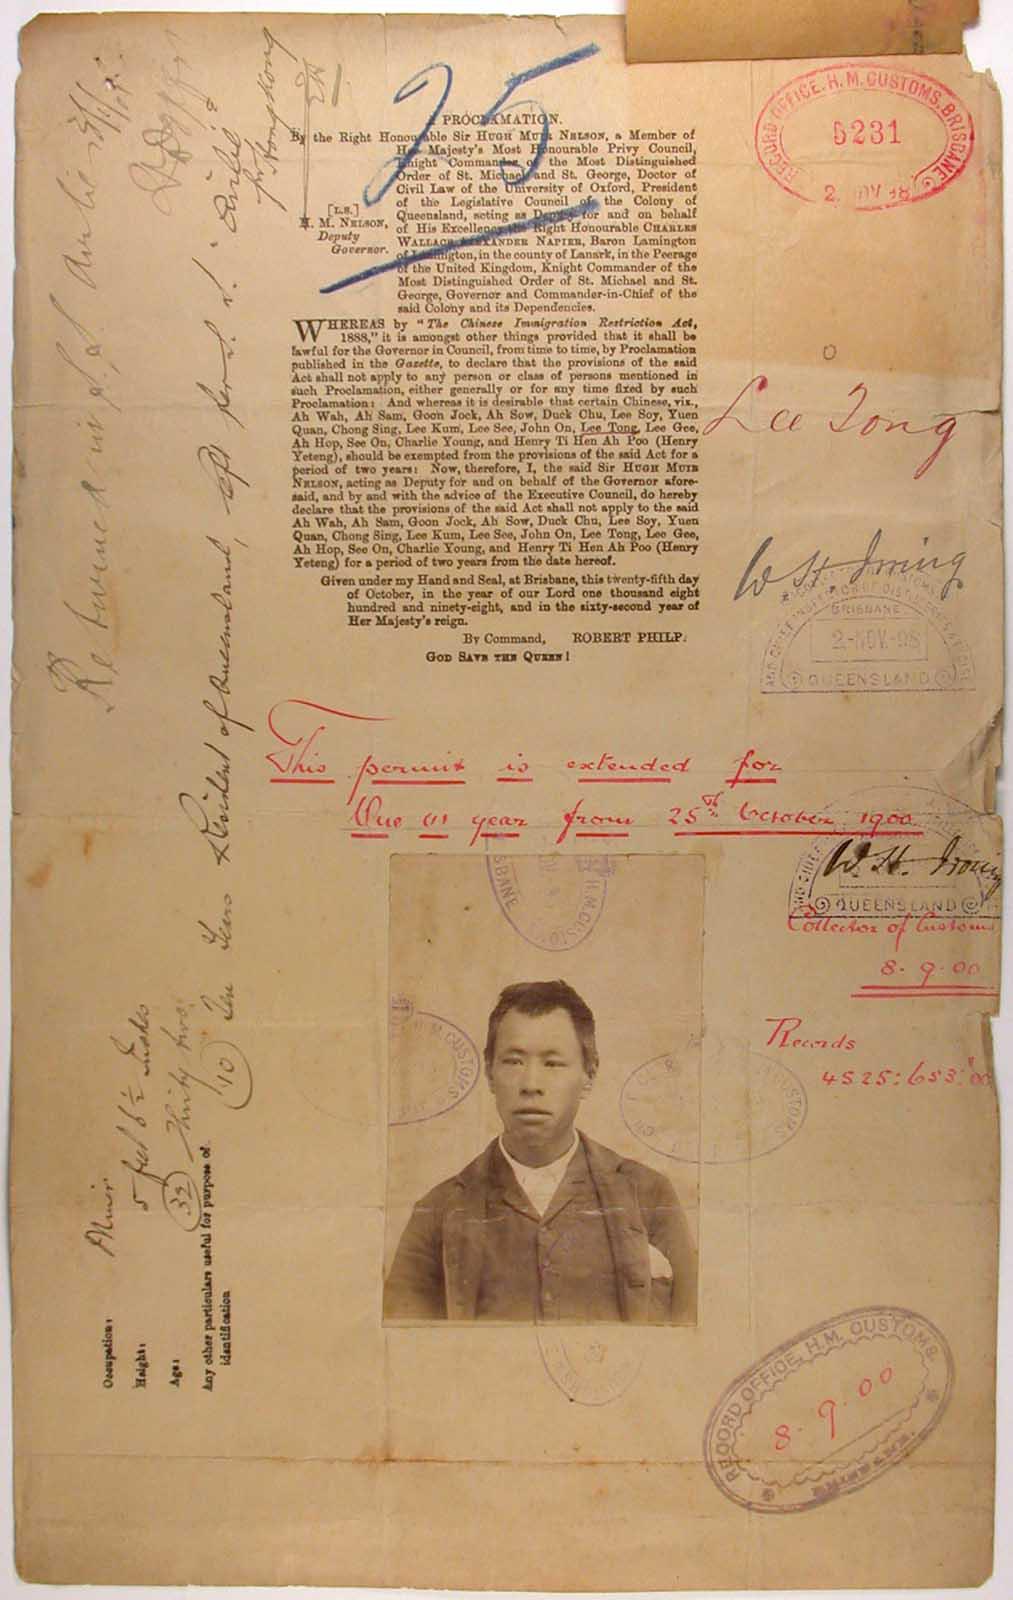 25
RECORD OFFICE. H. M. CUSTOMS, BRISBANE
5231
2 NOV 98
PROCLAMATION.
By the Right Honourable Sir HUGH MUIR NELSON, a Member of
Her Majesty's Most Honourable Privy Council,
Knight Commander of the Most Distinguished
Order of St. Michael and St. George, Doctor of
Civil Law of the University of Oxford, President
of the Legislative Council of the Colony of
Queensland, acting as Deputy for and on behalf
of His Excellency the Right Honourable CHARLES
WALLACE ALEXANDER NAPIER, Baron Lamington
of Lamington, in the county of Lanark, in the Peerage
of the United Kingdom, Knight Commander of the
Most Distinguished Order of St. Michael and St.
George, Governor and Commander-in-Chief of the
said Colony and its Dependencies.
[L.S.]
H. M. NELSON,
Deputy
Governor.
WHEREAS by "The Chinese Immigration Restriction Act,
1888," it is amongst other things provided that it shall be
lawful for the Governor in Council, from time to time, by Proclamation
published in the Gazette, to declare that the provisions of the said
Act shall not apply to any person or class of persons mentioned in
such Proclamation, either generally or for any time fixed by such
Proclamation: And whereas it is desirable that certain Chinese, viz.,
Ah Wah, Ah Sam, Goon Jock, Ah Sow, Duck Chu, Lee Soy, Yuen
Quan, Chong Sing, Lee Kum, Lee See, John On, Lee Tong, Lee Gee,
Ah Hop, See On, Charlie Young, and Henry Ti Hen Ah Poo (Henry
Yeteng), should be exempted from the provisions of the said Act for a
period of two years: Now, therefore, I, the said Sir HUGH MUIR
NELSON, acting as Deputy for and on behalf of the Governor afore-
said, and by and with the advice of the Executive Council, do hereby
declare that the provisions of the said Act shall not apply to the said
Ah Wah, Ah Sam, Goon Jock, Ah Sow, Duck Chu, Lee Soy, Yuen
Quan, Chong Sing, Lee Kum, Lee See, John On, Lee Tong, Lee Gee,
Ah Hop, See On, Charlie Young, and Henry Ti Hen Ah Poo (Henry
Yeteng) for a period of two years from the date hereof.
Given under my Hand and Seal, at Brisbane, this twenty-fifth day
of October, in the year of our Lord one thousand eight
hundred and ninety-eight, and in the sixty-second year of
Her Majesty's reign.
By Command, ROBERT PHILP.
GOD SAVE THE QUEEN!
Lee Tong
W H Irving
AND CHIEF INSPECTOR OF DISTILLERIES & EXCISE
BRISBANE
2-NOV.98
QUEENSLAND
This permit is extended for
One (1) year from 25th October 1900.
W. H. Irving
QUEENSLAND
Collector of Customs
8. 9. 00
Records
4525: 653: 00
RECORD OFFICE, H.M. CUSTOMS.
8. 9. 00
H.M.CUSTOMS
Returned in S.S. Airlie
Occupation: Miner
Height: 5 feet 6 ½ Inches
Age: (32) Thirty two
Any other particulars useful for purpose of
identification
(10) Ten Years Resident of Queensland, left per S.S. "Airlie"
for Hongkong